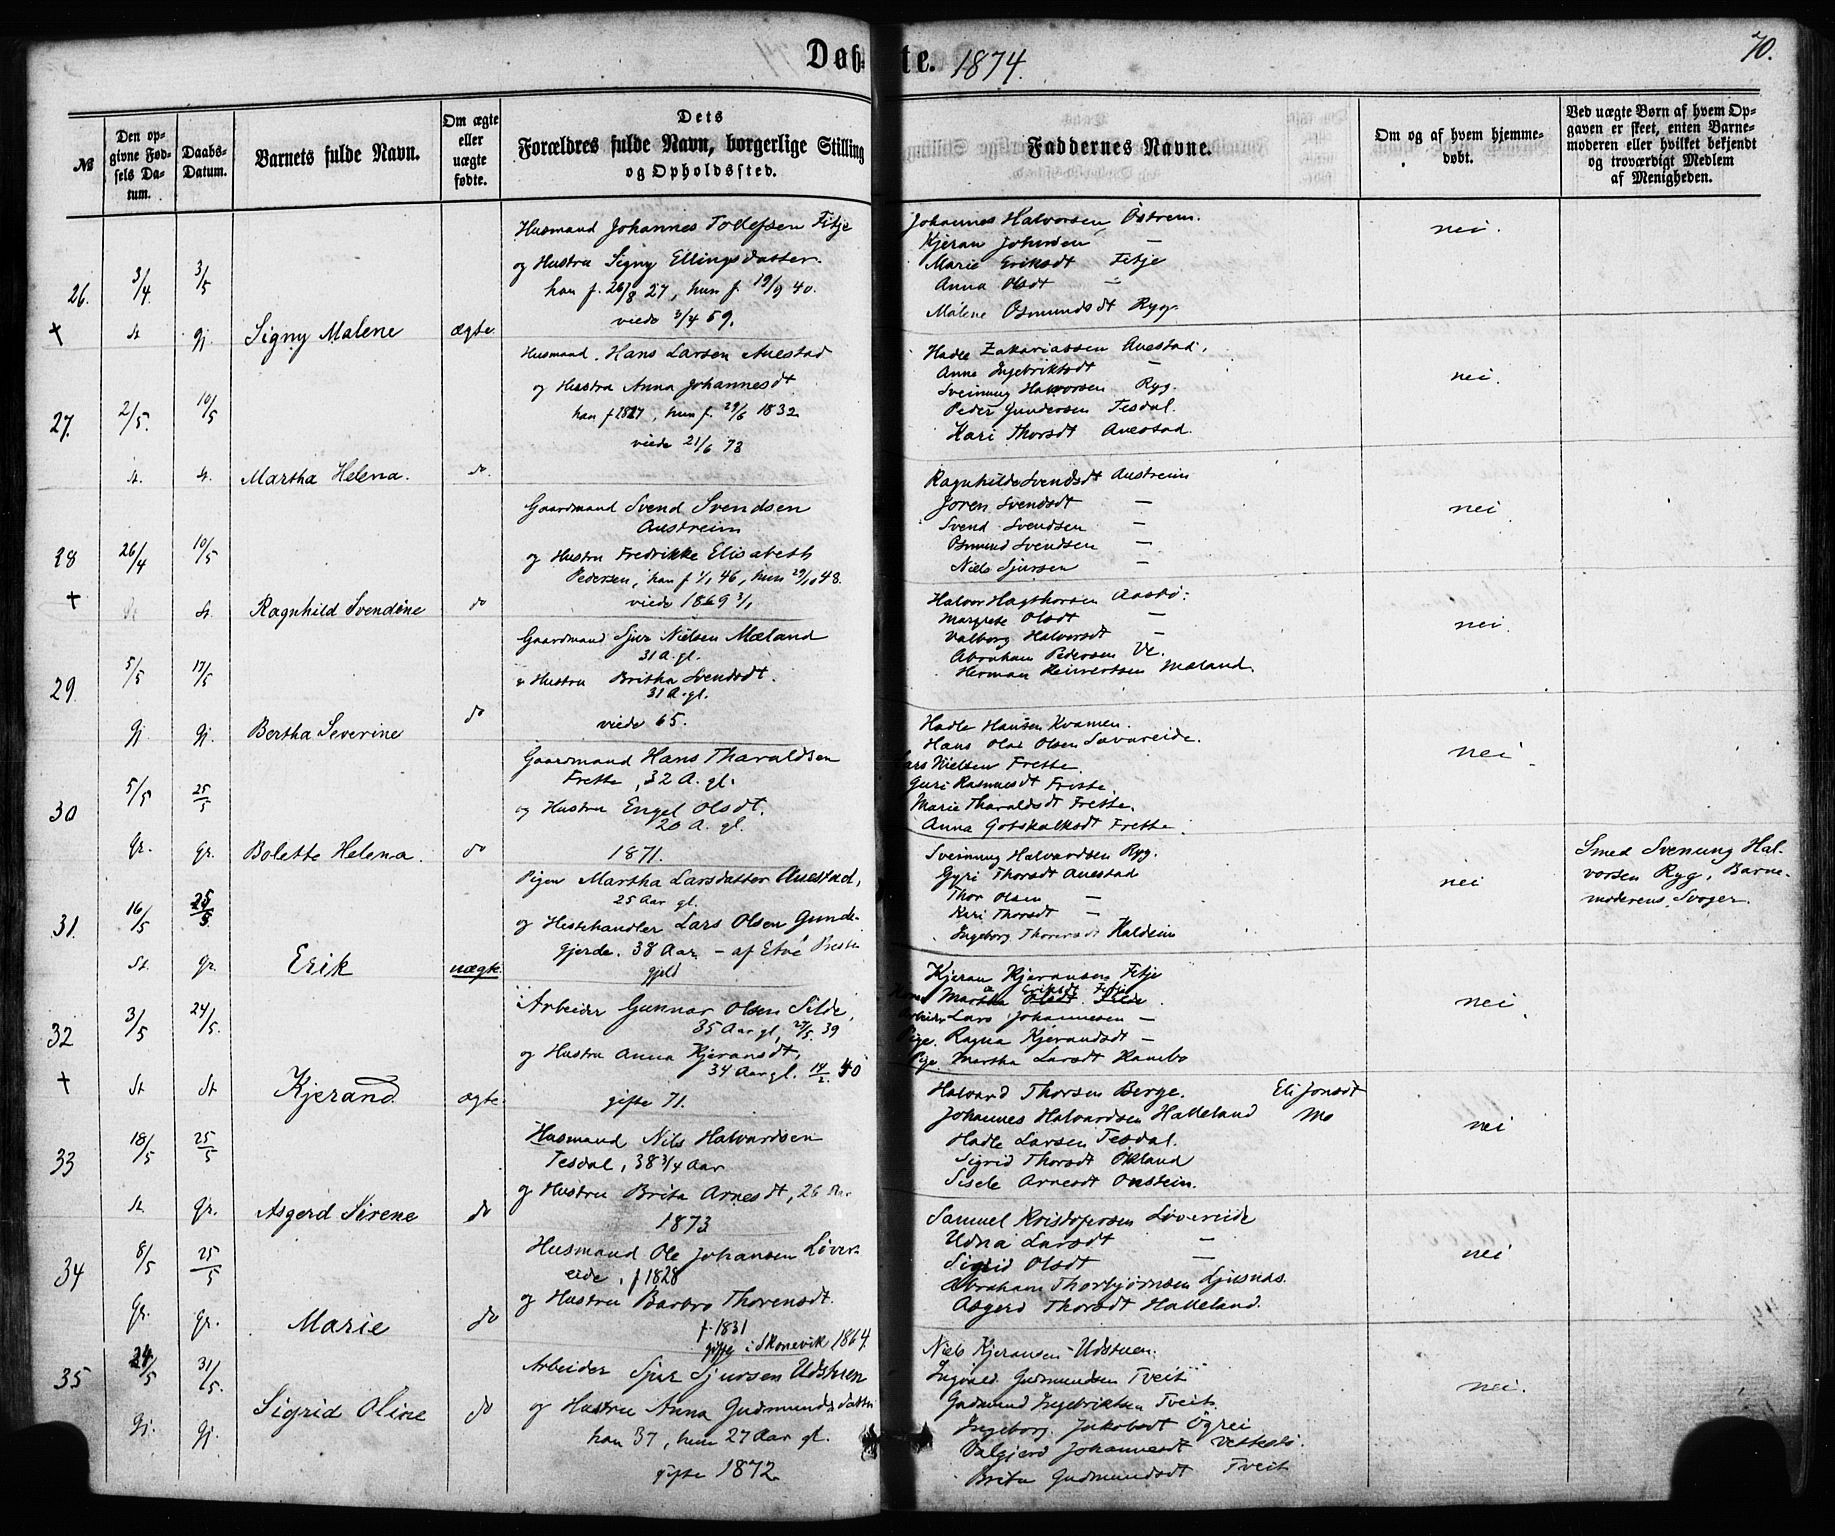 Døbte. 1874.
70.
№
Den opgivne Fødsels Datum.
Daabs-Datum.
Barnets fulde Navn.
Om ægte eller uægte fødte.
Dets Forældres fulde Navn, borgerlige Stilling og Opholdssted.
Faddernes Navne.
Om og af hvem hjemmedøbt.
Ved uægte Børn af hvem Opgaven er skeet, enten Barnemoderen eller hvilket bekjendt og troværdigt Medlem af Menigheden.
26. 3/4 3/5
Signy Malene ægte.
Husmand Johannes Tollefsen Fitje
og Hustru Signy Ellingsdatter.
han f. 26/8 27, hun f. 19/9 40.
viede 3/4 69.
Johannes Halvorsen Østrem.
Kjeran Johnsen —
Marie Eriksdt Fitje
Anna Olsdt —
Malene Osmundsdt Ryg.
nei.
27. 2/5. 10/5
Martha Helena. do.
Husmand. Hans Larsen Auestad
og Hustru Anna Johannesdt
han f 1827, hun f. 29/6 1832
viede 21/6 73
Hadle Zakariassen Auestad.
Anne Ingebriktsdt —
Sveinung Halvorsen Ryg.
Peder Gundersen Tesdal.
Kari Thorsdt Auestad.
nei.
28 26/4 10/5
Ragnhild Svendine do
Gaardmand Svend Svendsen
Austreim
og Hustru Fredrikke Elisabeth
Pedersen, han f 1/1 46, hun 29/10 48.
viede 1869 3/1
Ragnhilde Svendsdt Austreim
Joren Svendsdt —
Svend Svendsen —
Osmund Svendsen —
Niels Sjursen —
nei
29. 5/5 17/5
Bertha Severine do
Gaardmand Sjur Nielsen Mæland
31 A. gl.
& Hustru Britha Svendsdt.
31 A. gl.
viede 65.
Halvor Hagthorsen Aasbø:
Margrete Olsdt —
Valborg Halvorsdt —
Abraham Pedersen Ve.
Herman Reinertsen Mæland.
nei.
30 5/5 25/5
Gr. Gr. Bolette Helena. do
Gaardmand Hans Tharaldsen
Frette, 32 A. gl.
og Hustru Engel Olsdt.
20 A. gl.
1871.
Hadle Hansen Kvamen.
Hans Olai Olsen Løvareide.
Lars Nielsen Frette.
Guri Rasmusdt Frette.
Marie Tharaldsdt Frette.
Anna Gotskalksdt Frette.
nei.
31. 16/5 25/5
St. Gr. Erik uægte.
Pigen Martha Larsdatter Auestad,
25 Aar gl.
og Hestehandler Lars Olsen Gunde-
gjerde. 38 Aar — af Etne Preste-
gjeld
Sveinung Halvardsen Ryg.
Gyri Thorsdt Auestad
Thor Olsen —
Kari Thorsdt —
Ingeborg Thoresdt Kaldeim
nei
Smed Svenung Hal-
vorsen Ryg, Barne-
moderens Svoger.
32 3/5 24/5.
St St Kjerand ægte.
Arbeider Gunnar Olsen Silde,
35 Aar gl, 27/5. 39
og Hustru Anna Kjeransdt,
34 Aar gl. 14/2. 40
gifte 71.
Kjeran Kjeransen Fitje
Kone Martha Eriksdt Fitje
Arbeider Lars Johannesen —
Pige. Ragna Kjerandsdt —
Pige. Martha Larsdt Rambo
nei
33 18/5 25/5
St. Gr. Asgerd Serene do
Husmand Nils Halvardsen
Tesdal, 38 3/4 Aar
og Hustru Brita Arnesdt, 26 Aar
1873
Halvard Thorsen Berge. Eli Jonsdt
Johannes Halvardsen Halleland Mo
Hadle Larsen Tesdal.
Sigrid Thorsdt Økland
Sisele Arnesdt Onstein.
nei
34 8/5 25/5
Gr. Gr. Marie do
Husmand Ole Johansen Løver-
eide, f 1828
og Hustru Barbro Thorensdt.
f. 1831
gifte i Skonevik 1864.
Samuel Kristofersen Løvereide
Udna Larsdt —
Sigrid Olsdt —
Abraham Thorbjørnsen Ljusnæs.
Asgerd Thorsdt Halleland.
nei
35 24/5 31/5.
Gj. Gj. Sigrid Oline do
Arbeider Sjur Sjursen Udstuen
og Hustru Anna Gudmundsdatter
han 37, hun 27 Aar gl.
gifte 1872.
Niels Kjeransen Udstuen.
Ingvald Gudmundsen Tveit
Gudmund Ingebriktsen Tveit.
Ingeborg Jakobsdt Øgrei
Valgjerd Johannesdt Vettesbø
Brita Gudmundsdt Tveit
nei.